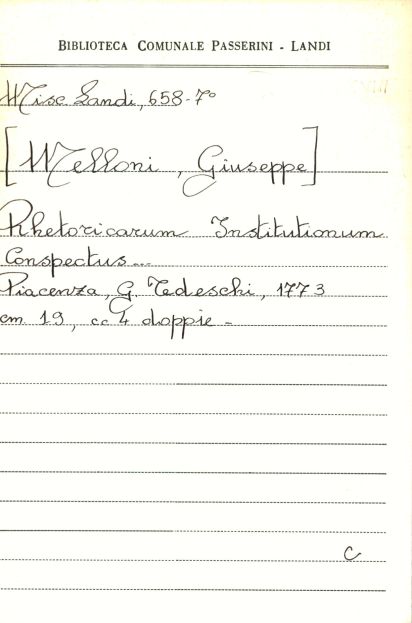 BIBLIOTECA COMUNALE PASSERINI - LANDI
Misc. Landi, 658-7°
[Melloni, Giuseppe]
Rhetoricarum Institutionum
Conspectus...
Piacenza, G. Tedeschi, 1773
cm. 19, cc 4 doppie -
C